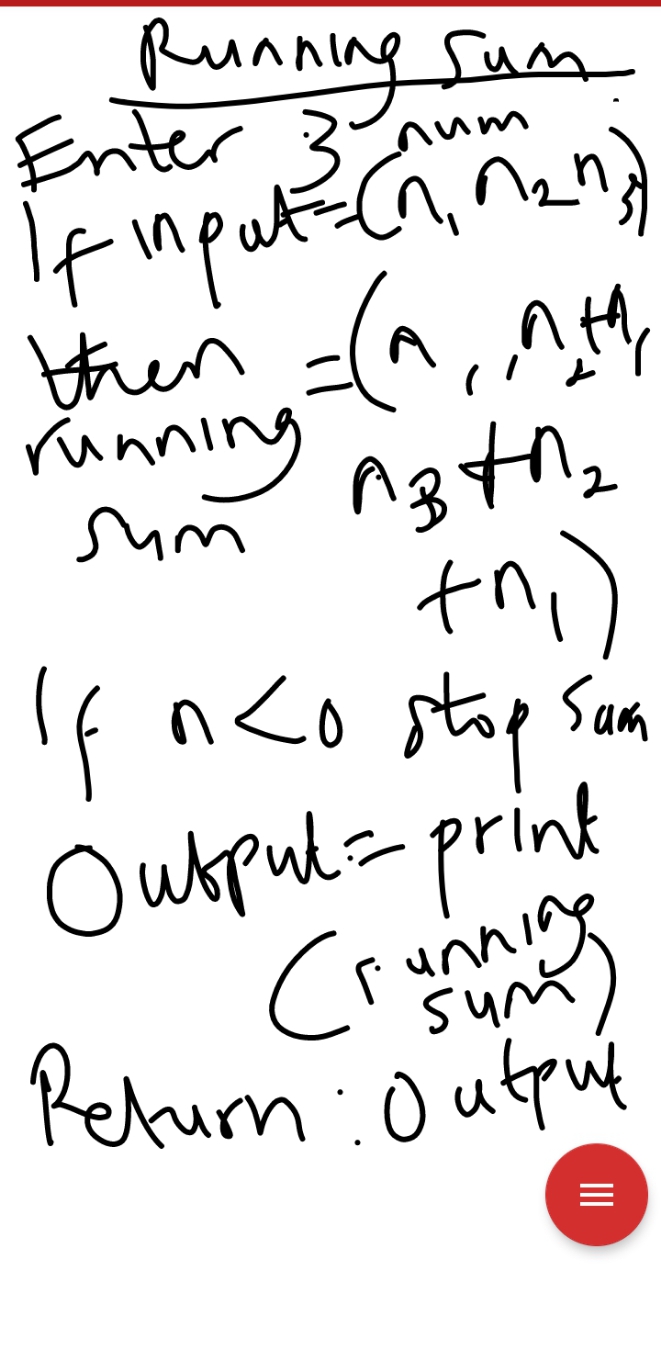 Running Sum
Enter 3 num
If input = (n₁ n₂ n₃)
then = (n₁, n₂+n₁
running n₃+n₂
sum +n₁)
If n<0 stop sum
Output = print
(running
sum)
Return : Output